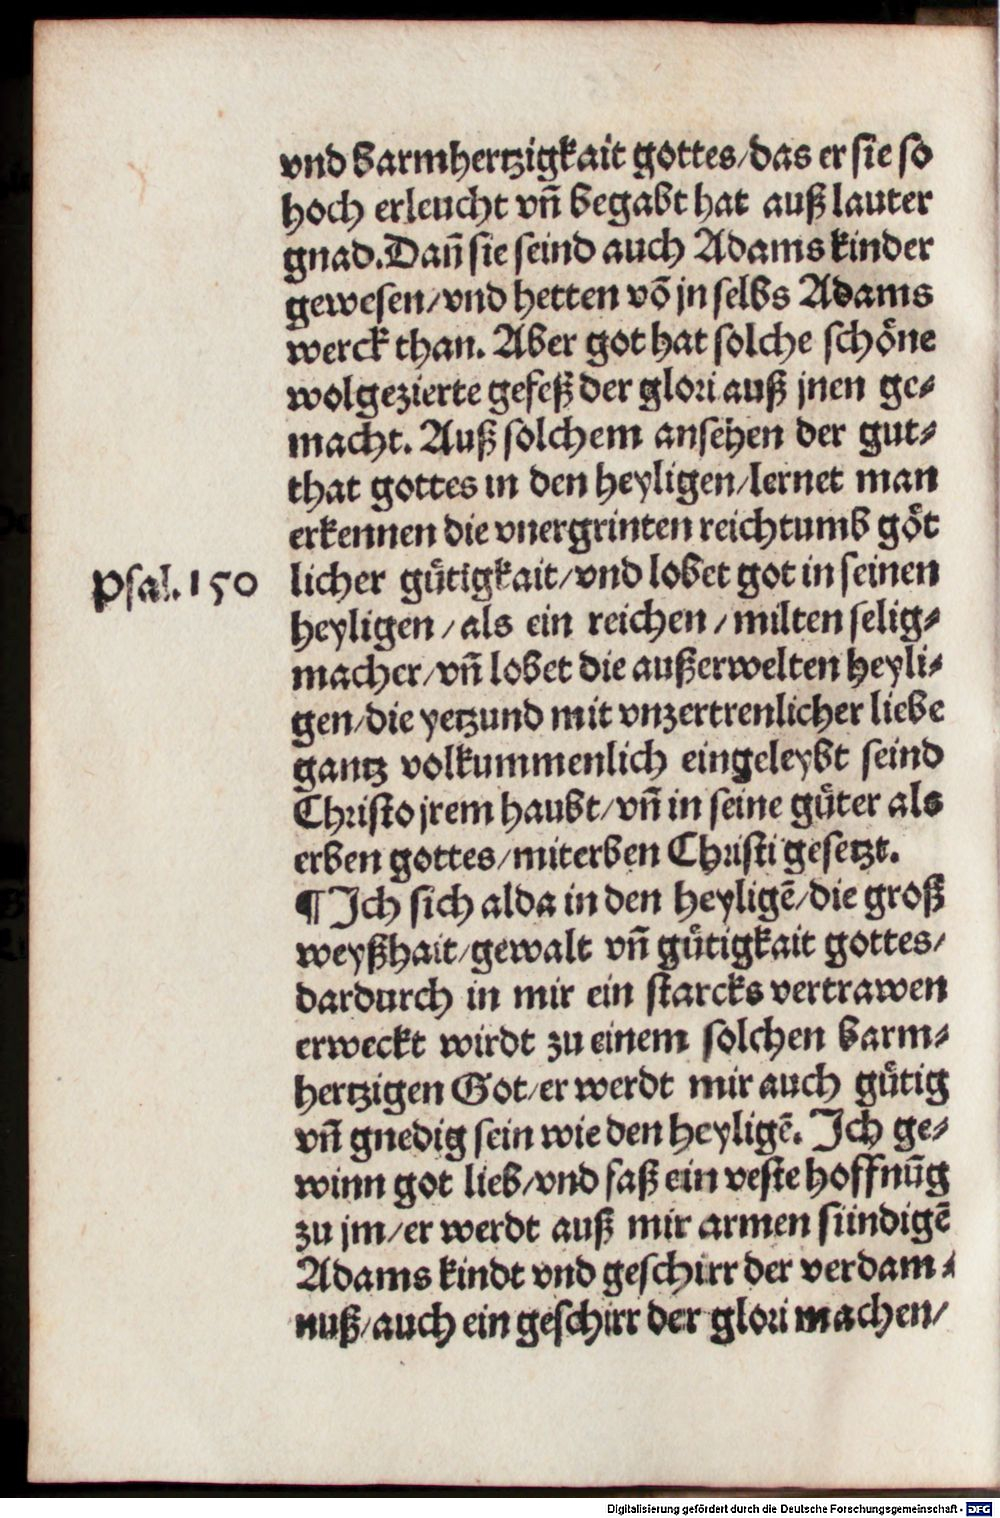 vnd barmhertzigkait gottes/das er sie so
hoch erleucht vn̄ begabt hat auß lauter
gnad. Dan̄ sie seind auch Adams kinder
gewesen/vnd hetten võ jn selbs Adams
werck than. Aber got hat solche schöne
wolgezierte gefeß der glori auß jnen ge⸗
macht. Auß solchem ansehen der gut⸗
that gottes in den heyligen/lernet man
erkennen die vnergrinten reichtumb göt
Psal. 150 licher gütigkait/vnd lobet got in seinen
heyligen/als ein reichen/milten selig⸗
macher/vn̄ lobet die außerwelten heyli⸗
gen/die yetzund mit vnzertrenlicher liebe
gantz volkummenlich eingeleybt seind
Christo jrem haubt/vn̄ in seine güter als
erben gottes/miterben Christi gesetzt.
¶ Ich sich alda in den heyligē/die groß
weyßhait/gewalt vn̄ gütigkait gottes/
dardurch in mir ein starcks vertrawen
erweckt wirdt zu einem solchen barm⸗
hertzigen Got/er werdt mir auch gütig
vn̄ gnedig sein wie den heyligē. Ich ge⸗
winn got lieb/vnd faß ein veste hoffnūg
zu jm/er werdt auß mir armen sündigē
Adams kindt vnd geschirr der verdam⸗
nuß/auch ein geschirr der glori machen/
Digitalisierung gefördert durch die Deutsche Forschungsgemeinschaft - DFG